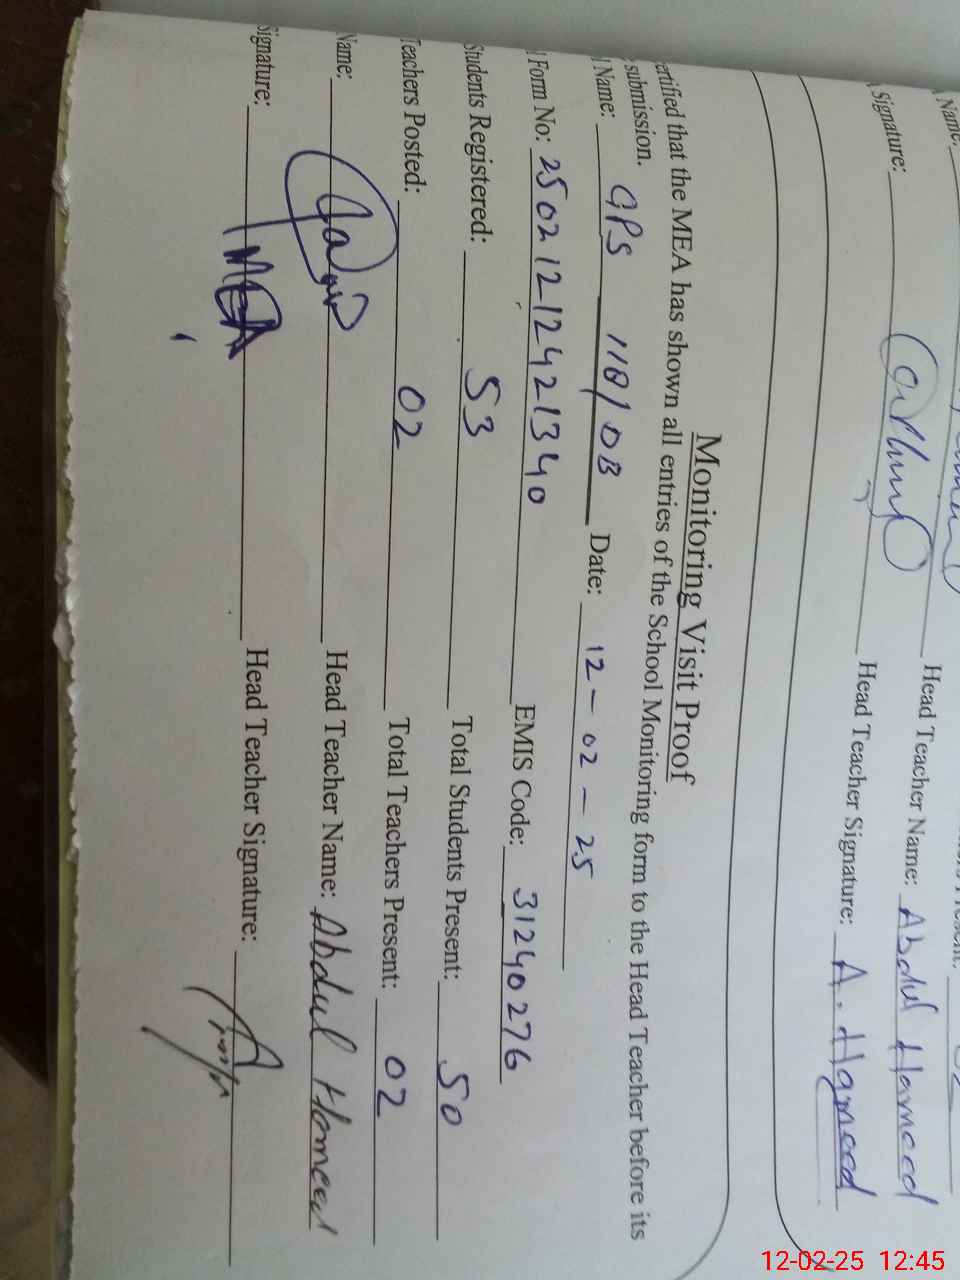 Name:
Head Teacher Name: Abdul Hameed
Signature:
Head Teacher Signature: A. Hameed
Monitoring Visit Proof
ertified that the MEA has shown all entries of the School Monitoring form to the Head Teacher before its
submission.
Name: GPS 118/DB Date: 12-02-25
Form No: 25021212421340 EMIS Code: 31240276
Students Registered: 53 Total Students Present: 50
Teachers Posted: 02 Total Teachers Present: 02
Name: Head Teacher Name: Abdul Hameed
Signature: MEA Head Teacher Signature:
12-02-25 12:45